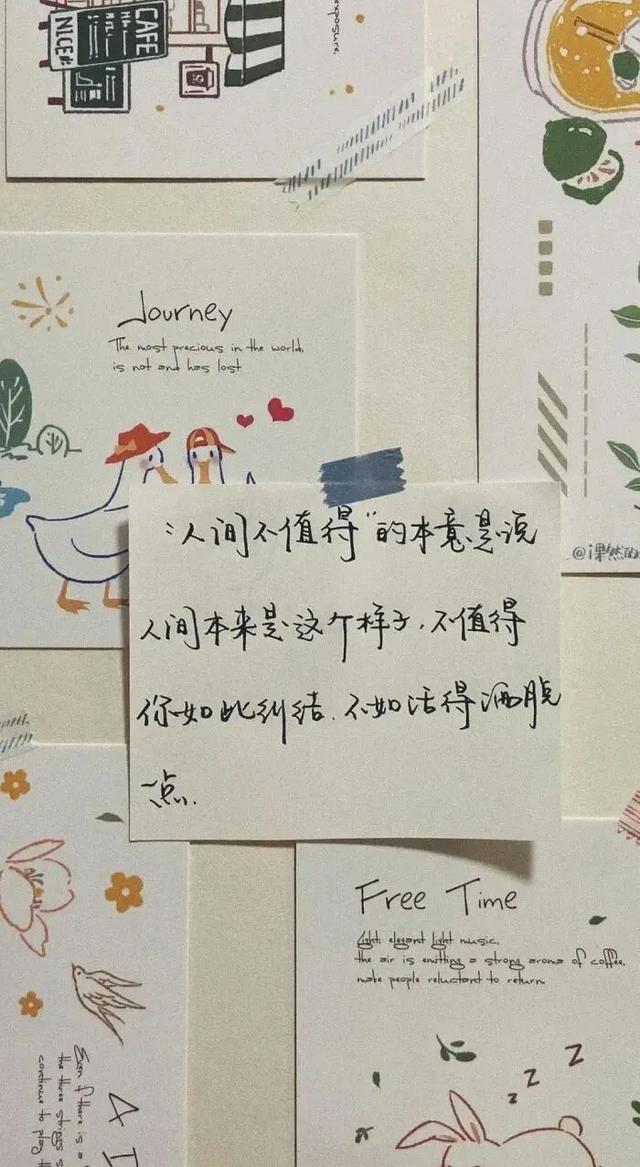 CAFE
NICE
exposure.
Journey
The most precious in the world,
is not and has lost
"人间不值得"的本意是说
人间本来是这个样子,不值得
你如此纠结.不如活得洒脱
一点.
@i果然的
Free Time
Light, elegant light music,
the air is emitting a strong aroma of coffee,
make people reluctant to return
Even if there is a
the three strings s
continue to play th